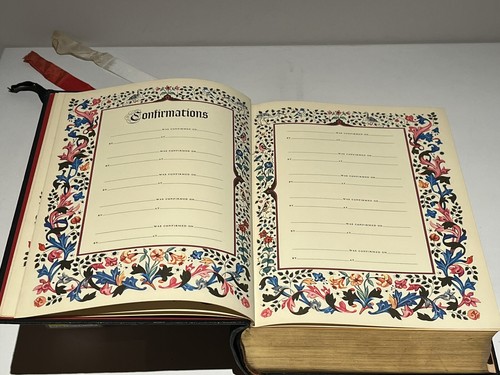 Confirmations
WAS CONFIRMED ON
BY AT
WAS CONFIRMED ON
BY AT
WAS CONFIRMED ON
BY AT
WAS CONFIRMED ON
BY AT
WAS CONFIRMED ON
BY AT
WAS CONFIRMED ON
BY AT
WAS CONFIRMED ON
BY AT
WAS CONFIRMED ON
BY AT
WAS CONFIRMED ON
BY AT
WAS CONFIRMED ON
BY AT
WAS CONFIRMED ON
BY AT